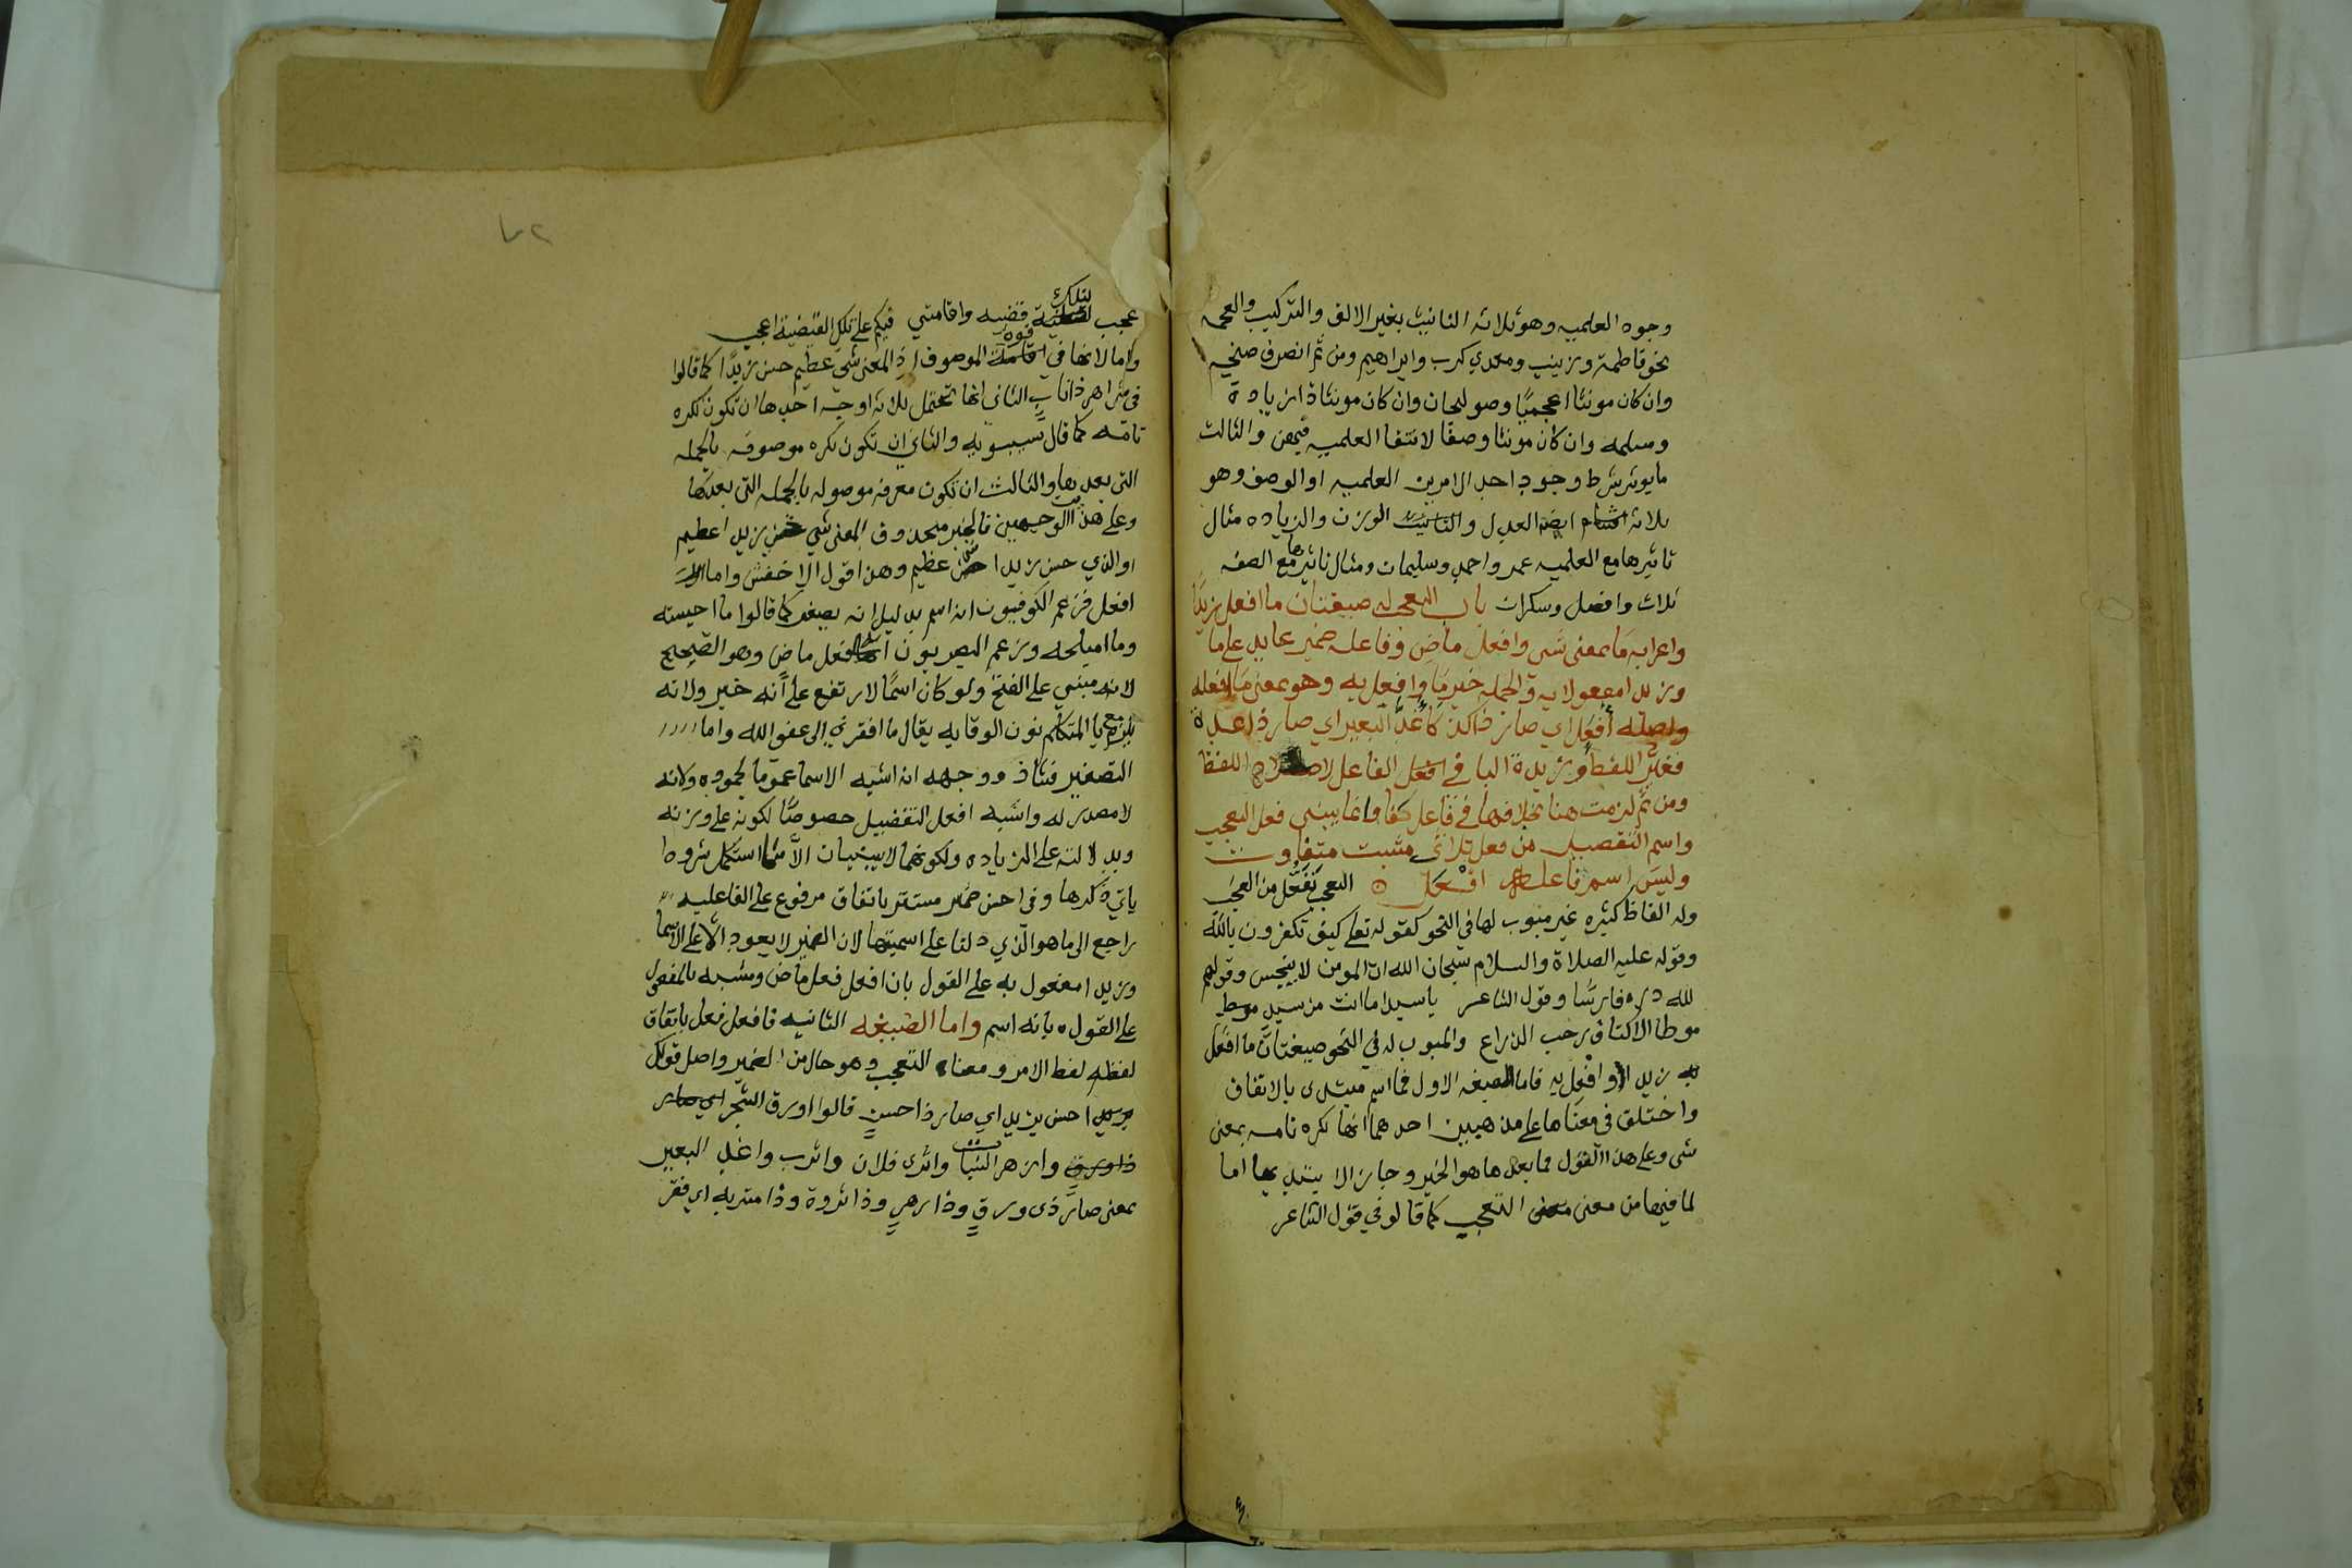 وجوه العلميه وهو ثلاثه التانيث بغير الالف والتركيب والعجمه
نحو فاطمة وزينب ومعدي كرب وابراهيم ومن ثم انصرف صنجه
وان كان مونثا اعجميا وصولجان وان كان مونثا ذا زيادة
ومسلمه وان كان مونثا وصفا لانتفا العلميه فيهن والثالث
ما يوثر بشرط وجود احد الامرين العلميه او الوصف وهو
ثلاثه ايضا العدل والوزن والزياده مثال
تاثيرها مع العلميه عمر واحمد وسليمان ومثال تاثيرها مع الصفه
ثلاث وافضل وسكران باب التعجب له صيغتان ما افعل زيدا
واعرابه ما بمعنى شى وافعل ماض وفاعله ضمير عايد على ما
وزيدا مفعولا به والجمله خبر ما وافعل به وهو بمعنى ما افعله
واصله افعل اي صار ذا كذا كاغد البعير اي صار ذا غدة
فغير اللفظ وزيدة البا في الفاعل لاصلاح اللفظ
ومن ثم لزمت هنا بخلافها في فاعل كفا وانما يبنى فعل التعجب
واسم التفضيل من فعل ثلاثي مثبت متفاوت
وليس اسم فاعله افعل ه التعجب تفعل من العجب
وله الفاظ كثيره غير مبوب لها في النحو كقوله تعلى كيف تكفرون بالله
وقوله عليه الصلاة والسلام سبحان الله ان المومن لا ينجس وقولهم
لله دره فارسا وقول الشاعر يا سيدا ما انت من سيد موطا
موطا الاكتاف رحب الذراع والمبوب له في النحو صيغتان ما افعل
زيدا وافعل به فاما الصيغه الاول فما اسم مبتدى بالاتفاق
واختلف في معناها على مذهبين احدهما انها نكره تامه بمعنى
شى وعلى هذا القول فما بعدها هو الخبر وجاز الا يبتدى بها اما
لما فيها من معنى معنى التعجب كما قالو في قول الشاعر
٧٢
عجب لتلك قضيه واقامتي فيكم على تلك القضية اعجب
واما لانها في قوة الموصوف اذ المعنى شي عظيم حسن زيدا كما قالوا
في شر اهر ذا ناب الثانى انها تحتمل ثلاثه اوجه احدها ان تكون نكره
تامه كما قال سيبويه والثاني ان تكون نكره موصوفه بالجمله
التى بعدها والثالث ان تكون معرفه موصوله بالجمله التى بعدها
وعلى هذا الوجهين فالخبر محذوف المعنى شي حسن زيدا عظيم
او الذي حسن زيدا شي عظيم وهذا قول الاخفش واما
افعل فزعم الكوفيون انه اسم بدليل انه يصغر كما قالوا ما احيسنه
وما اميلحه وزعم البصريون انه فعل ماض وهو الصحيح
لانه مبني على الفتح ولو كان اسما لارتفع على انه خبر ولانه
يلزم مع يا المتكلم نون الوقايه يقال ما افقرني الى عفو الله واما
التصغير فشاذ ووجهه انه اشبه الاسما عموما لجموده ولانه
لا مصدر له واشبه افعل التفضيل خصوصا لكونه على وزنه
وبدلالته على الزياده ولكونهما لا يبنيان الا مما استكمل شروطا
ياتي ذكرها وفى احسن ضمير مستتر باتفاق مرفوع على الفاعليه
راجع الى ما هو الذي دلنا على اسميتها لان الضمير لا يعود الا على الاسما
وزيدا مفعول به على القول بان افعل فعل ماض ومشبه بالمفعول
على القول بانه اسم واما الصيغه الثانيه فافعل فعل باتفاق
لفظه لفظ الامر ومعناه التعجب وهو خال من الضمير واصل قولك
احسن بزيد اي صار ذا حسن قالوا اورق الشجر
وازهر النبات واثرى فلان واترب واغد البعير
بمعنى صار ذى ورق وذا زهر وذا ثروة وذا متربه اي فقر